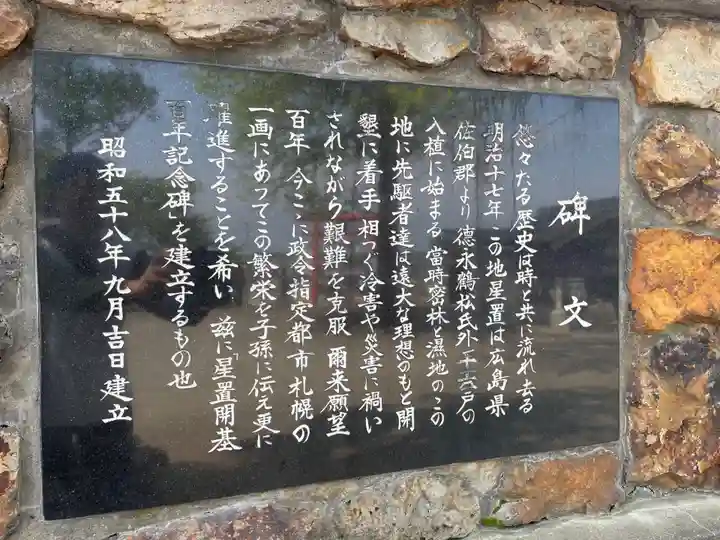 碑文
悠々たる歴史は時と共に流れ去る
明治十七年 この地星置は広島県
佐伯郡より 徳永鶴松氏外二十六戸の
入植に始まる 當時密林と濕地のこの
地に先駆者達は遠大な理想のもと開
墾に着手 相つぐ冷害や災害に禍い
されながら艱難を克服 爾来願望
百年 今こゝに政令指定都市札幌の
一画にあつてこの繁栄を子孫に伝え更に
躍進することを希い 茲に「星置開基
百年記念碑」を建立するもの也
昭和五十八年九月吉日建立